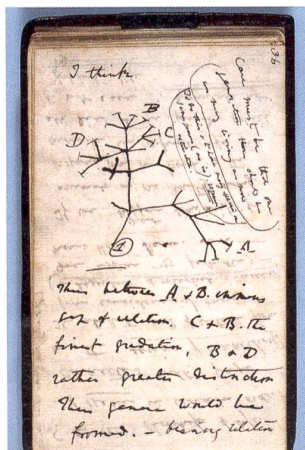 36
I think
B
D
C
A
1
Case must be that one
generation then should be
as many living as now
To do this & to have many species in
same genus (as is) requires
extinction.
Thus between A & B. immens
gap of relation. C & B. the
finest gradation, B & D
rather greater distinction
Thus genera would be
formed. — bearing relation